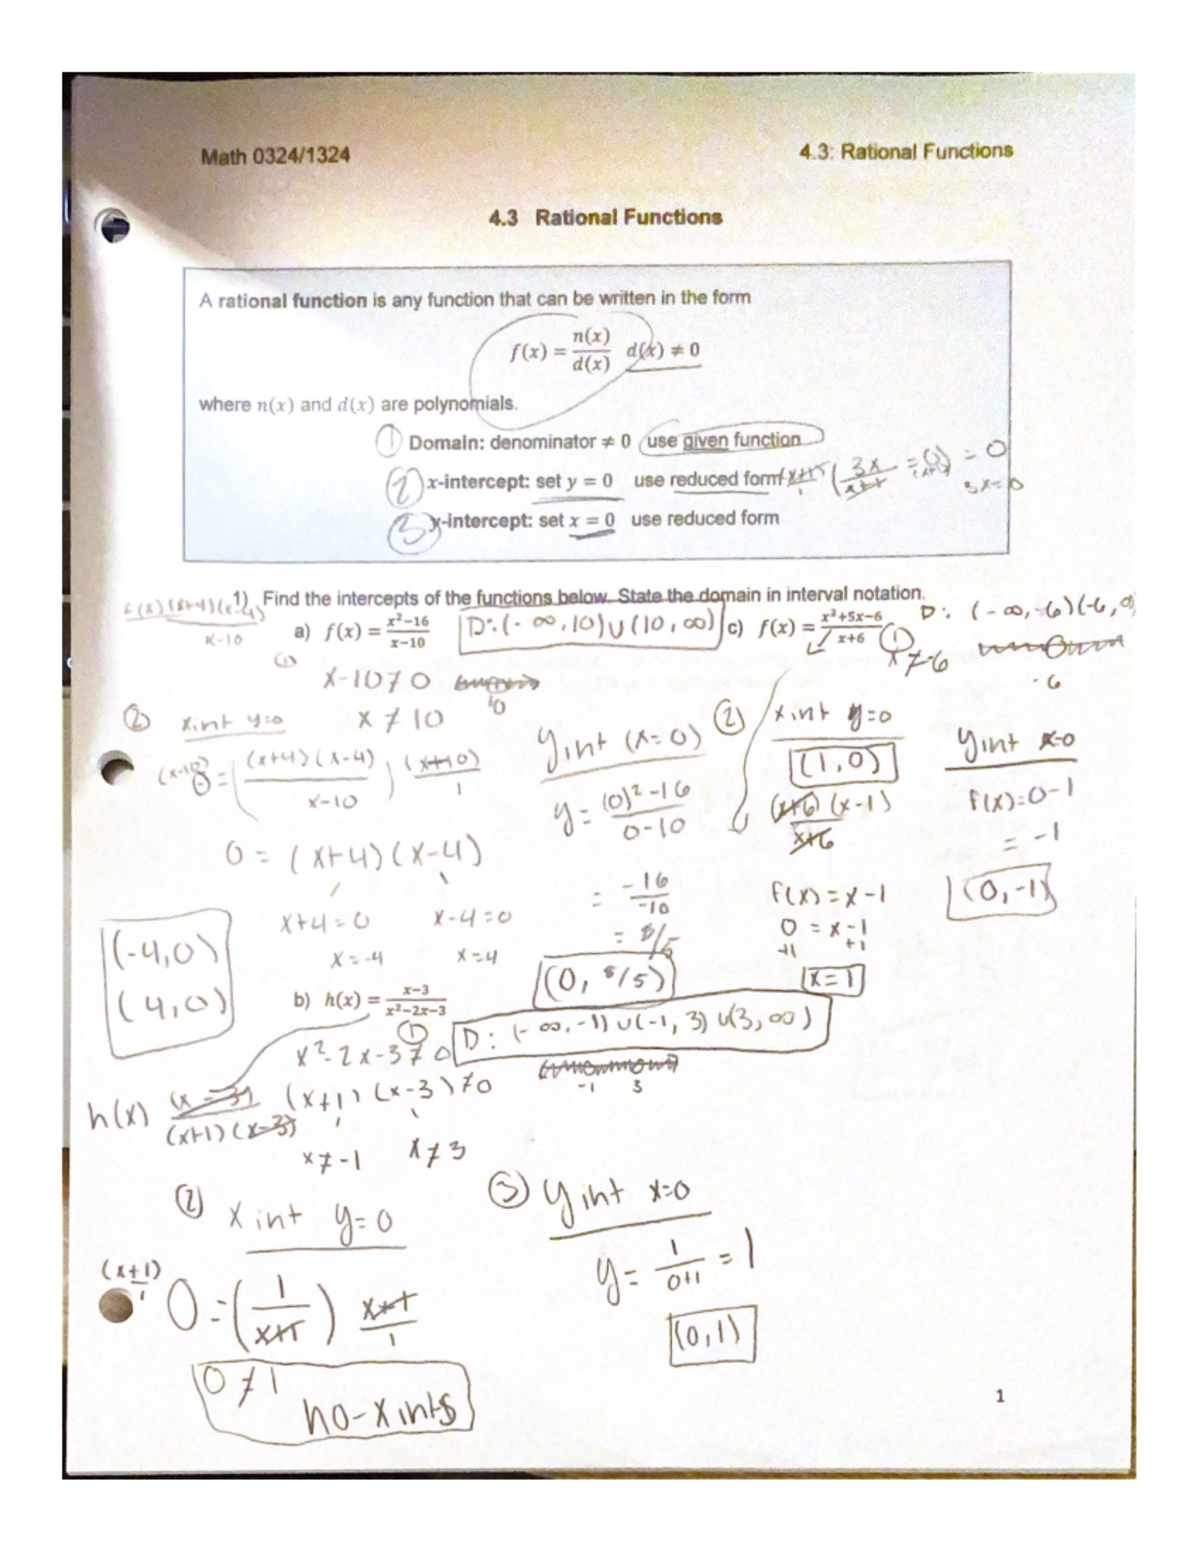 Math 0324/1324
4.3: Rational Functions
4.3 Rational Functions
A rational function is any function that can be written in the form
f(x) = n(x)/d(x) d(x) ≠ 0
where n(x) and d(x) are polynomials.
① Domain: denominator ≠ 0 use given function
② x-intercept: set y = 0 use reduced form
3x = 0
③ y-intercept: set x = 0 use reduced form
1) Find the intercepts of the functions below. State the domain in interval notation.
x-10
a) f(x) = x²-16/x-10
D: (-∞,10)∪(10,∞)
①
x-10≠0
10
x≠10
② x int y=0
0 = ((x+4)(x-4)/x-10)
0 = (x+4)(x-4)
x+4=0 x-4=0
x=-4 x=4
(-4,0)
(4,0)
y int (x=0)
y = (0)²-16/0-10
= -16/-10
= 8/5
(0, 8/5)
c) f(x) = x²+5x-6/x+6
① x≠-6
D: (-∞,-6)(-6,∞)
-6
② x int y=0
(1,0)
(x+6)(x-1)/x+6
f(x)=x-1
0 = x-1
+1 +1
x=1
y int x=0
f(x)=0-1
= -1
(0,-1)
b) h(x) = x-3/x²-2x-3
①
D: (-∞,-1)∪(-1,3)∪(3,∞)
-1 3
x²-2x-3≠0
h(x) (x-3)/(x+1)(x-3)
(x+1)(x-3)≠0
x≠-1 x≠3
② x int y=0
(x+1)/1 0=(1/x+1) x+1/1
0≠1
no-x ints
③ y int x=0
y = 1/0+1 = 1
(0,1)
1